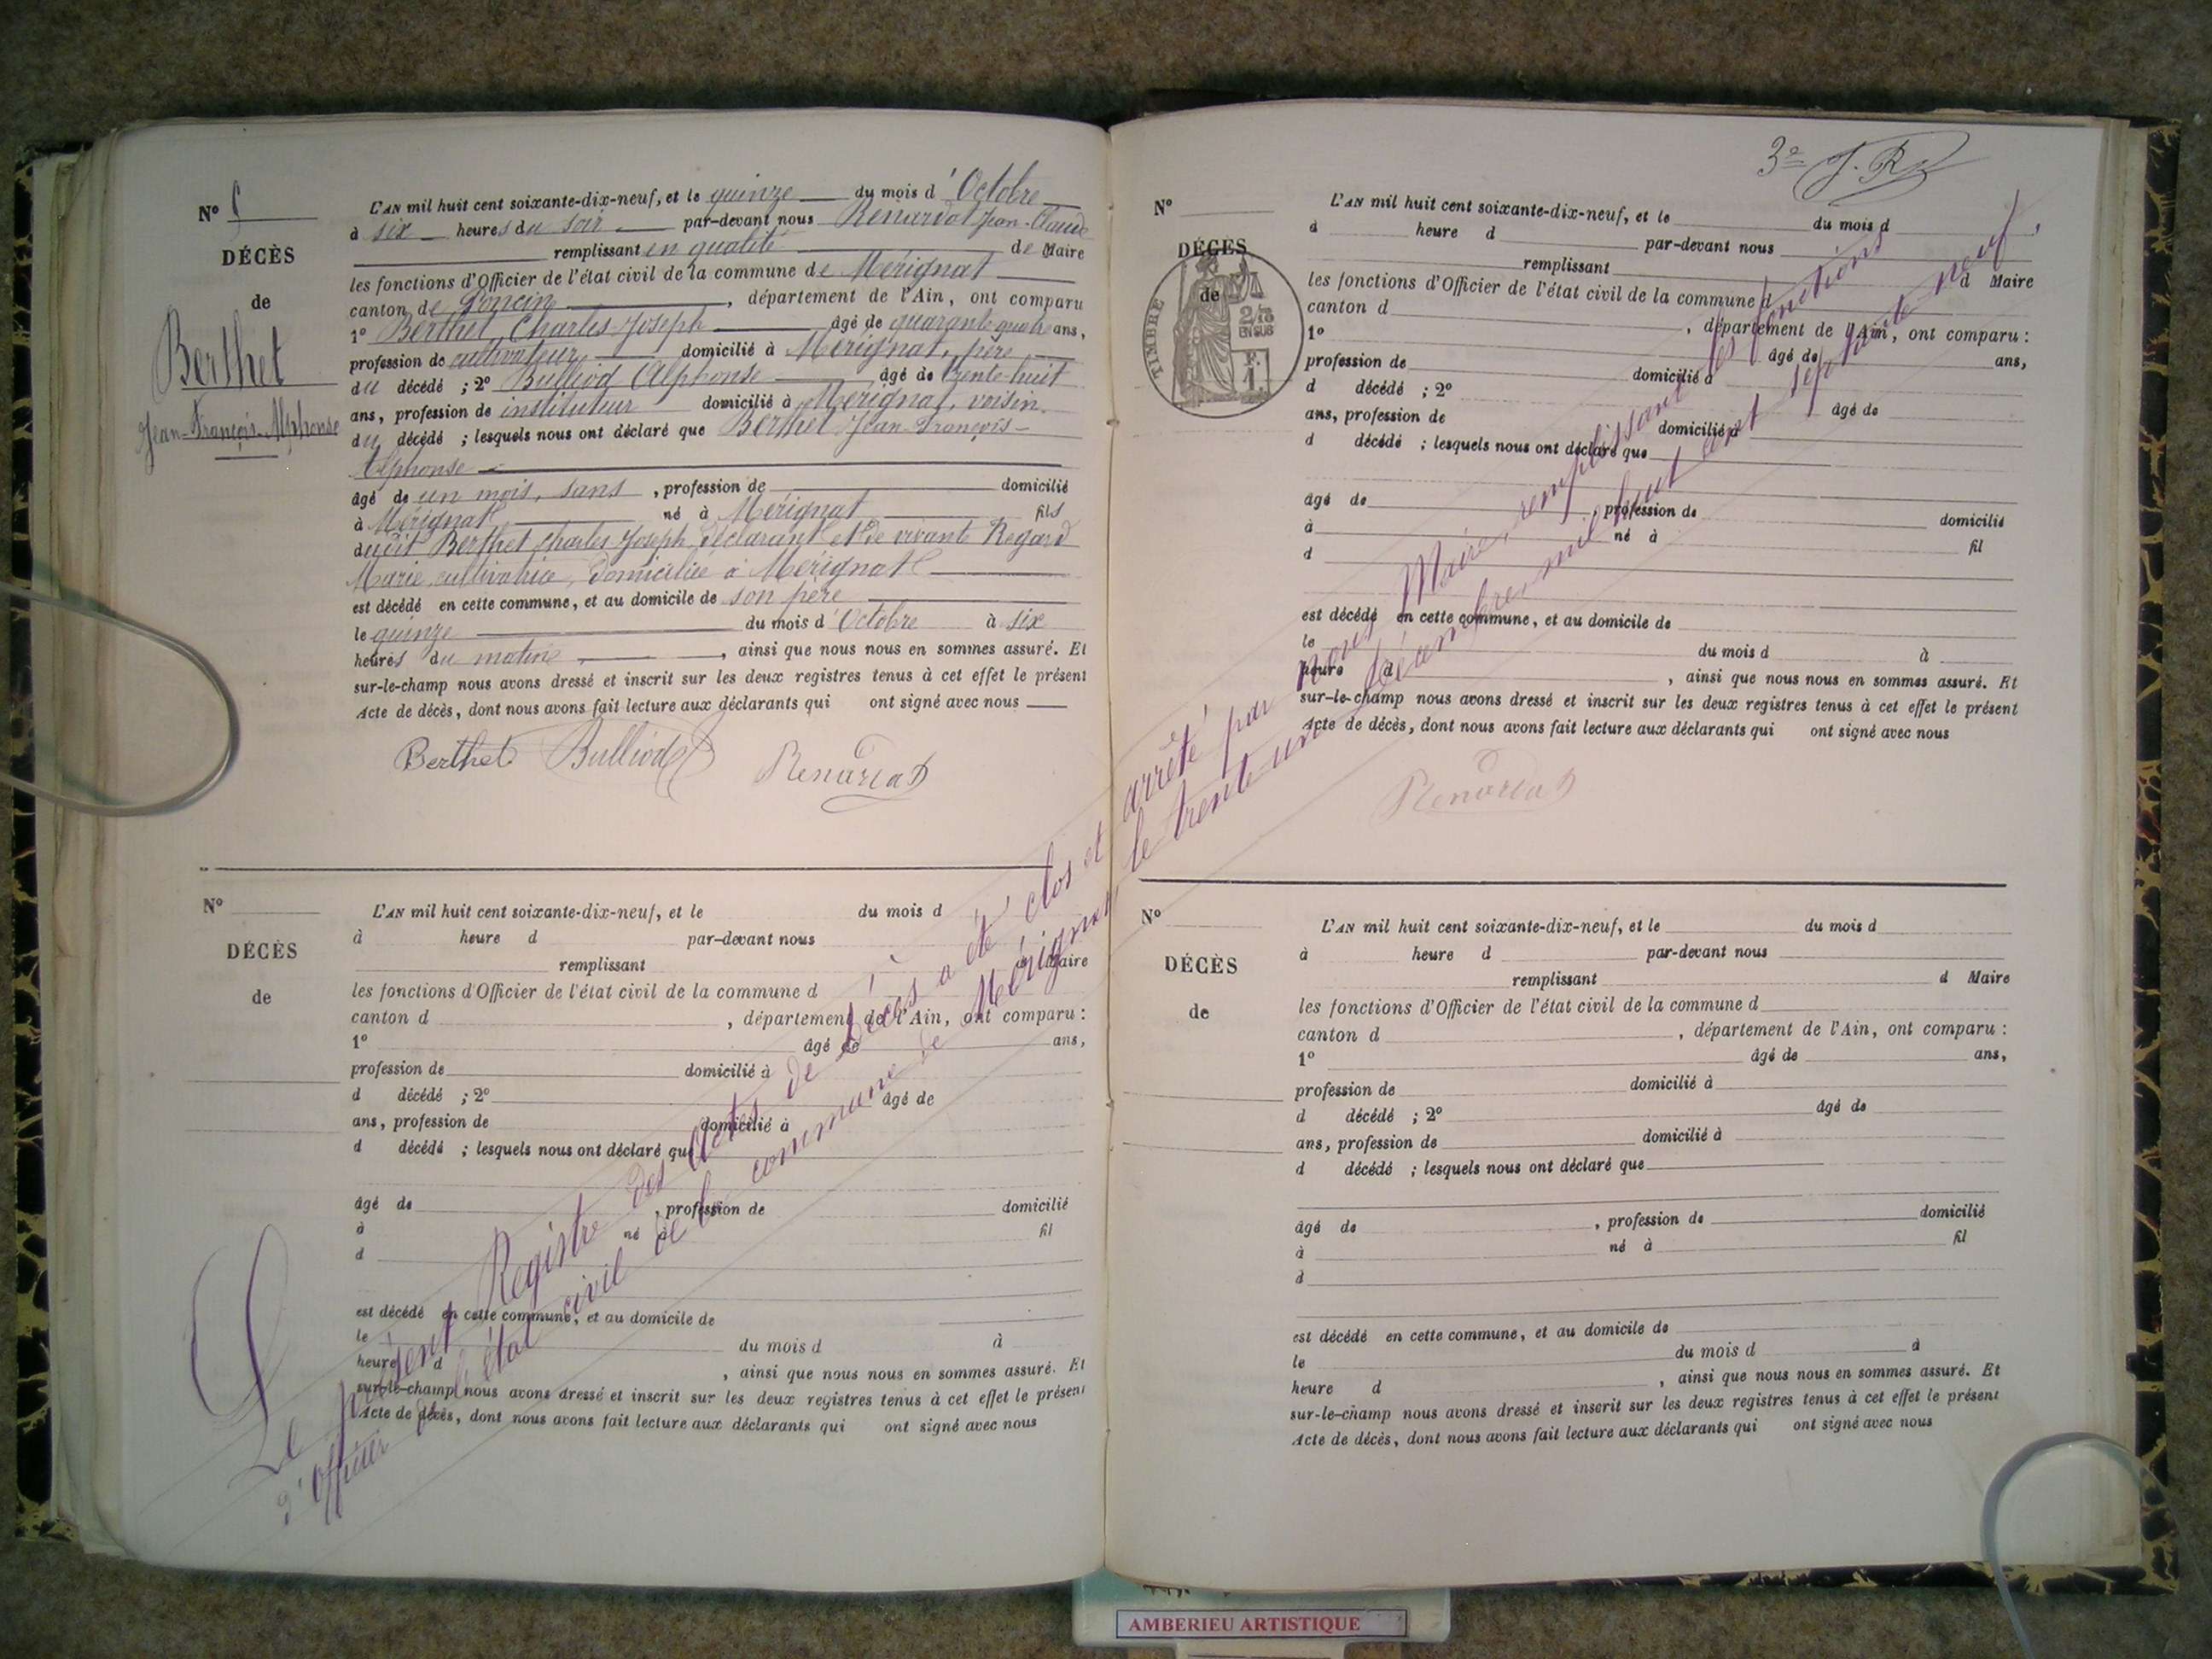 Nº
DÉCÈS
de
Berthet
Jean-François-Alphonse
L'AN mil huit cent soixante-dix-neuf, et le quinze du mois d'Octobre
à six heures du soir par-devant nous Renariat Jean-Claude
remplissant en qualité de Maire
les fonctions d'Officier de l'état civil de la commune de Mérignat
canton de Poncin, département de l'Ain, ont comparu
1º Berthet Charles Joseph âgé de quarante quatre ans,
profession de cultivateur domicilié à Mérignat, père
du décédé ; 2º Bulliod Alphonse âgé de trente-huit
ans, profession de instituteur domicilié à Mérignat, voisin
du décédé ; lesquels nous ont déclaré que Berthet Jean-François-
Alphonse
âgé de un mois, sans, profession de domicilié
à Mérignat né à Mérignat fils
dudit Berthet Charles Joseph déclarant et de vivante Regard
Marie, cultivatrice, domiciliée à Mérignat
est décédé en cette commune, et au domicile de son père
le quinze du mois d'Octobre à six
heures du matin, ainsi que nous nous en sommes assuré. Et
sur-le-champ nous avons dressé et inscrit sur les deux registres tenus à cet effet le présent
Acte de décès, dont nous avons fait lecture aux déclarants qui ont signé avec nous
Berthet Bulliod Renariat
Nº
DÉCÈS
de
L'AN mil huit cent soixante-dix-neuf, et le du mois d
à heure d par-devant nous
remplissant d Maire
les fonctions d'Officier de l'état civil de la commune d
canton d , département de l'Ain, ont comparu :
1º âgé de ans,
profession de domicilié à
d décédé ; 2º âgé de
ans, profession de domicilié à
d décédé ; lesquels nous ont déclaré que
âgé de , profession de domicilié
à né à fil
d
est décédé en cette commune, et au domicile de
le du mois d à
heure d , ainsi que nous nous en sommes assuré. Et
sur-le-champ nous avons dressé et inscrit sur les deux registres tenus à cet effet le présent
Acte de décès, dont nous avons fait lecture aux déclarants qui ont signé avec nous
Le présent Registre des Actes de décès a été clos et arrêté par nous Maire, remplissant les fonctions
d'Officier de l'état civil de la commune de Mérignat, le trente un décembre, mil huit cent soixante dix neuf.
3e J. R
Nº
DÉCÈS
de
TIMBRE
2/10
EN SUS
F.
1.
L'AN mil huit cent soixante-dix-neuf, et le du mois d
à heure d par-devant nous
remplissant d Maire
les fonctions d'Officier de l'état civil de la commune d
canton d , département de l'Ain, ont comparu :
1º âgé de ans,
profession de domicilié à
d décédé ; 2º âgé de
ans, profession de domicilié à
d décédé ; lesquels nous ont déclaré que
âgé de , profession de domicilié
à né à fil
d
est décédé en cette commune, et au domicile de
le du mois d à
heure d , ainsi que nous nous en sommes assuré. Et
sur-le-champ nous avons dressé et inscrit sur les deux registres tenus à cet effet le présent
Acte de décès, dont nous avons fait lecture aux déclarants qui ont signé avec nous
Renariat
Nº
DÉCÈS
de
L'AN mil huit cent soixante-dix-neuf, et le du mois d
à heure d par-devant nous
remplissant d Maire
les fonctions d'Officier de l'état civil de la commune d
canton d , département de l'Ain, ont comparu :
1º âgé de ans,
profession de domicilié à
d décédé ; 2º âgé de
ans, profession de domicilié à
d décédé ; lesquels nous ont déclaré que
âgé de , profession de domicilié
à né à fil
d
est décédé en cette commune, et au domicile de
le du mois d à
heure d , ainsi que nous nous en sommes assuré. Et
sur-le-champ nous avons dressé et inscrit sur les deux registres tenus à cet effet le présent
Acte de décès, dont nous avons fait lecture aux déclarants qui ont signé avec nous
AMBERIEU ARTISTIQUE